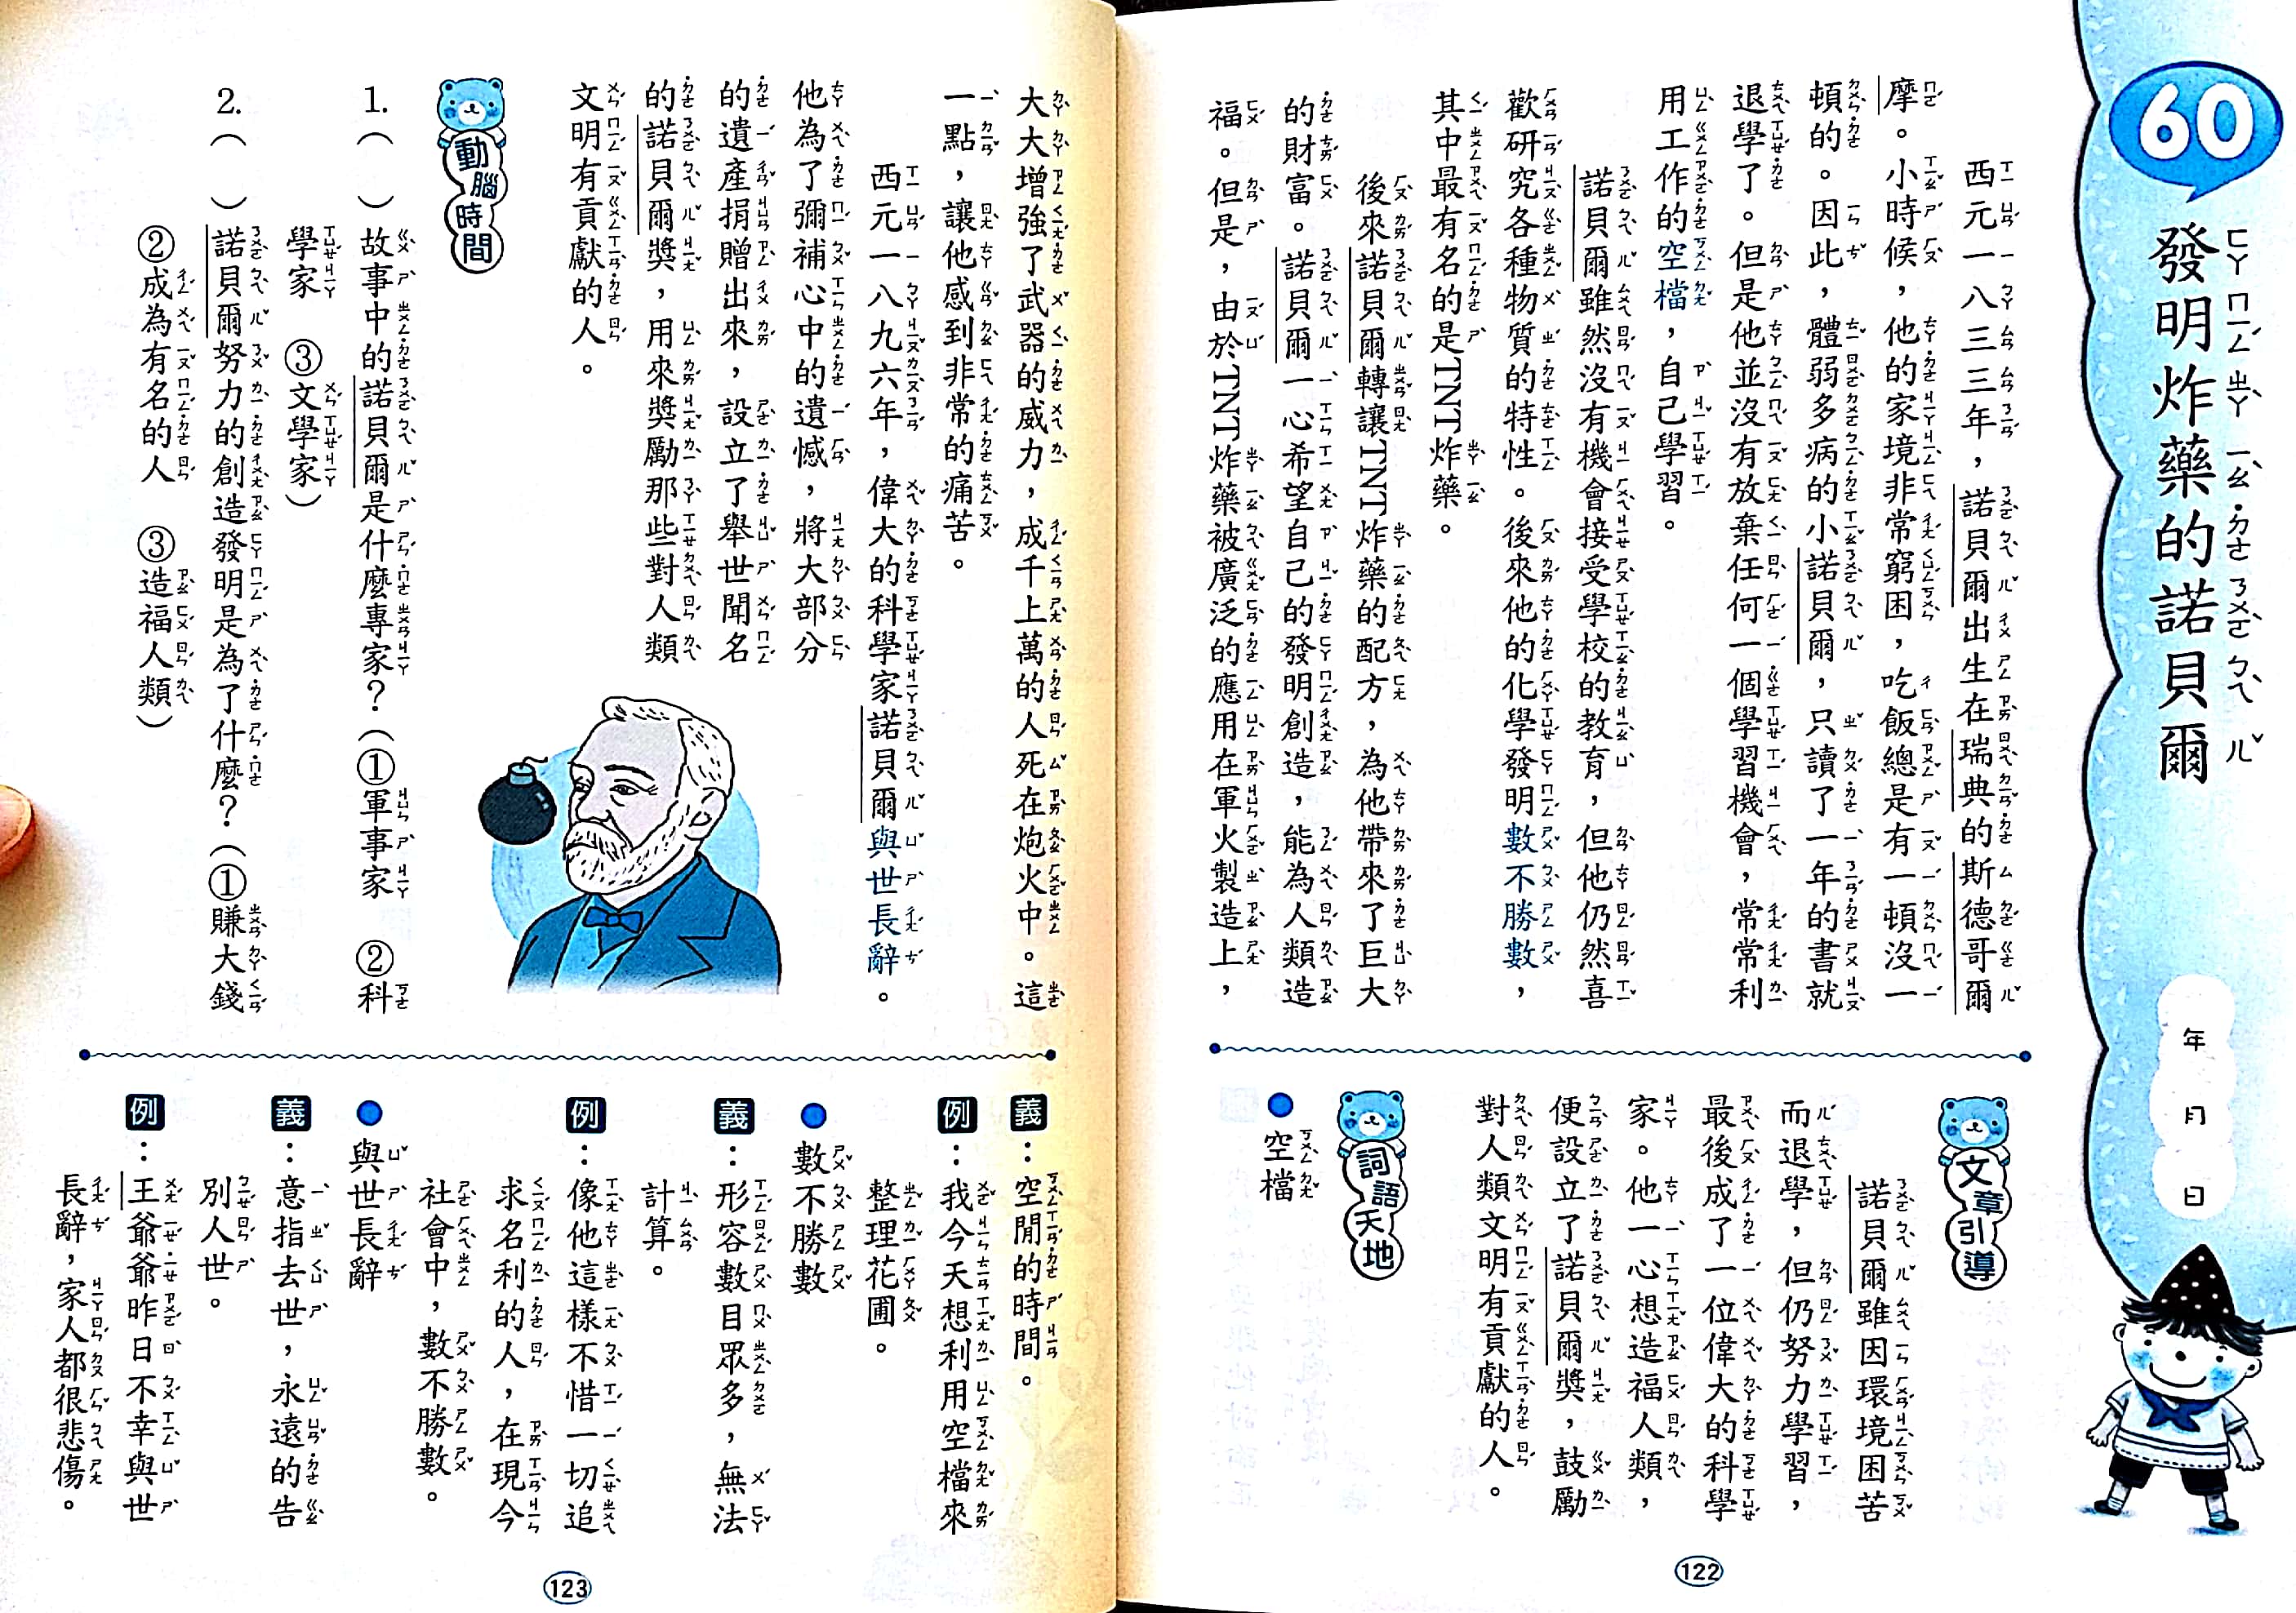 60
發明炸藥的諾貝爾
年 月 日
西元一八三三年，諾貝爾出生在瑞典的斯德哥爾
摩。小時候，他的家境非常窮困，吃飯總是有一頓沒一
頓的。因此，體弱多病的小諾貝爾，只讀了一年的書就
退學了。但是他並沒有放棄任何一個學習機會，常常利
用工作的空檔，自己學習。
諾貝爾雖然沒有機會接受學校的教育，但他仍然喜
歡研究各種物質的特性。後來他的化學發明數不勝數，
其中最有名的是TNT炸藥。
後來諾貝爾轉讓TNT炸藥的配方，為他帶來了巨大
的財富。諾貝爾一心希望自己的發明創造，能為人類造
福。但是，由於TNT炸藥被廣泛的應用在軍火製造上，
文章引導
諾貝爾雖因環境困苦
而退學，但仍努力學習，
最後成了一位偉大的科學
家。他一心想造福人類，
便設立了諾貝爾獎，鼓勵
對人類文明有貢獻的人。
詞語天地
●空檔
122
大大增強了武器的威力，成千上萬的人死在炮火中。這
一點，讓他感到非常的痛苦。
西元一八九六年，偉大的科學家諾貝爾與世長辭。
他為了彌補心中的遺憾，將大部分
的遺產捐贈出來，設立了舉世聞名
的諾貝爾獎，用來獎勵那些對人類
文明有貢獻的人。
動腦時間
1.（ ）故事中的諾貝爾是什麼專家？（①軍事家 ②科
學家 ③文學家）
2.（ ）諾貝爾努力的創造發明是為了什麼？（①賺大錢
②成為有名的人 ③造福人類）
義：空閒的時間。
例：我今天想利用空檔來
整理花圃。
●數不勝數
義：形容數目眾多，無法
計算。
例：像他這樣不惜一切追
求名利的人，在現今
社會中，數不勝數。
●與世長辭
義：意指去世，永遠的告
別人世。
例：王爺爺昨日不幸與世
長辭，家人都很悲傷。
123